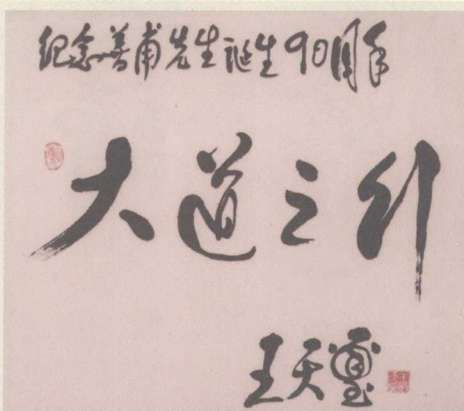 纪念善甫先生诞生90周年
大道之行
王天璽